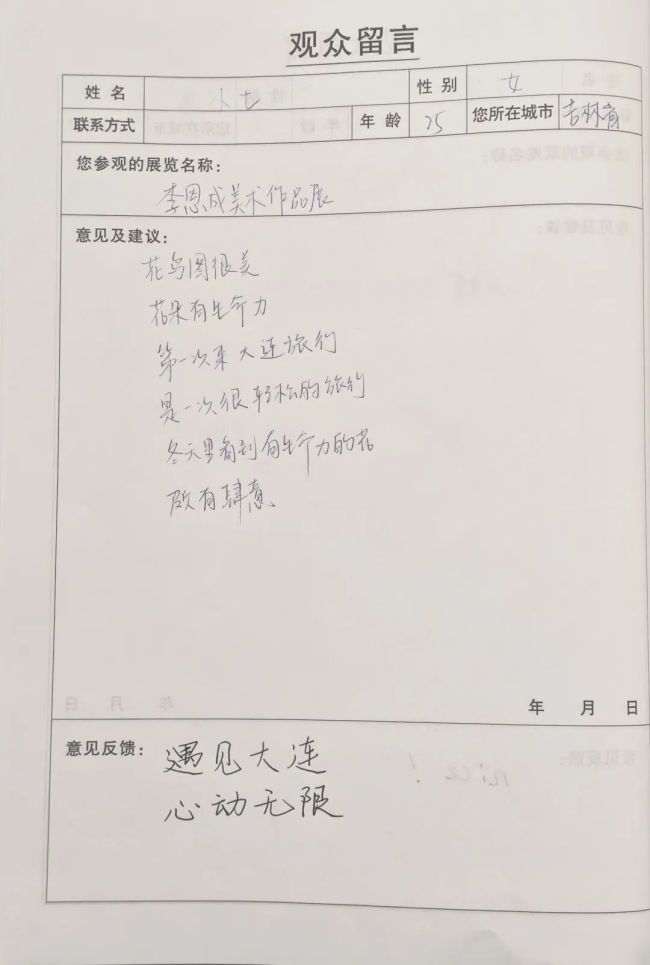 观众留言
姓名 小七 性别 女
联系方式 年龄 25 您所在城市 吉林省
您参观的展览名称:
李恩成美术作品展
意见及建议:
花鸟图很美
花朵有生命力
第一次来大连旅行
是一次很轻松的旅行
冬天里看到有生命力的花
颇有肆意、
年 月 日
意见反馈: 遇见大连
心动无限